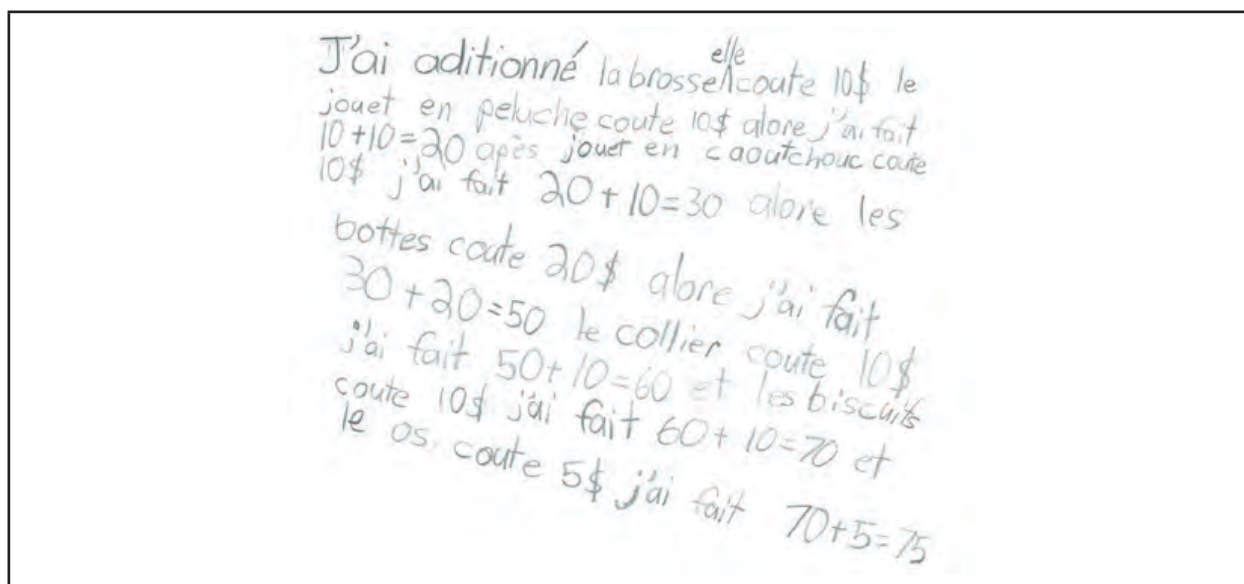 J'ai aditionné la brosse elle coute 10$ le
jouet en peluche coute 10$ alore j'ai fait
10+10=20 apès jouet en caoutchouc coute
10$ j'ai fait 20+10=30 alore les
bottes coute 20$ alore j'ai fait
30+20=50 le collier coute 10$
j'ai fait 50+10=60 et les biscuits
coute 10$ j'ai fait 60+10=70 et
le os coute 5$ j'ai fait 70+5=75